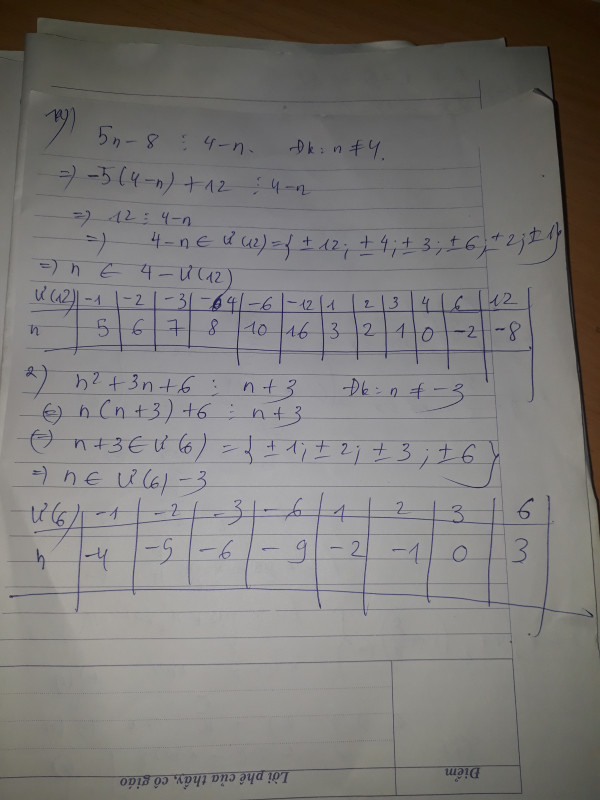 1)
5n-8 ⋮ 4-n. Đk: n ≠ 4.
=) -5(4-n) + 12 ⋮ 4-n
=) 12 ⋮ 4-n
=) 4-n ∈ Ư(12) = {±12; ±4; ±3; ±6; ±2; ±1}
=) n ∈ 4 - Ư(12)
Ư(12) -1 -2 -3 -4 -6 -12 1 2 3 4 6 12
n 5 6 7 8 10 16 3 2 1 0 -2 -8
2) n² + 3n + 6 ⋮ n+3 Đk: n ≠ -3
(=) n(n+3) + 6 ⋮ n+3
(=) n+3 ∈ Ư(6) = {±1; ±2; ±3; ±6}
=) n ∈ Ư(6) - 3
Ư(6) -1 -2 -3 -6 1 2 3 6
n -4 -5 -6 -9 -2 -1 0 3
Điểm
Lời phê của thầy, cô giáo